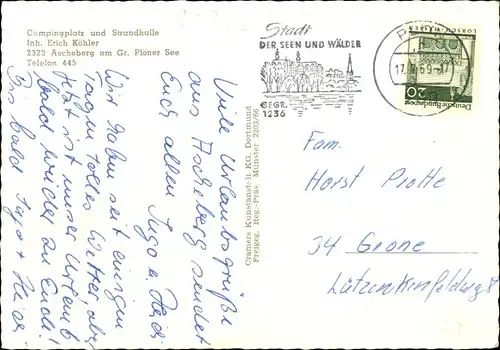 Campingplatz und Strandhalle
Inh. Erich Köhler
2323 Ascheberg am Gr. Plöner See
Telefon 445
Stadt
DER SEEN UND WÄLDER
GEGR.
1236
17. 69-17
Deutsche Bundespost
20
LORSCH/HESSEN
Viele Urlaubsgrüße
aus Ascheberg sendet
Euch allen Ingo u. Heidi
Wir haben seit einigen
Tagen tolles Wetter aber
jetzt ist unser Urlaub
bald wieder zu Ende!
Bis bald Ingo + Heidi
Cramers Kunstanstalt KG, Dortmund
Freigeg. Reg.-Präs. Münster 2203/66
Fam.
Horst Protte
34 Grone
Lützenkinfeldweg 8